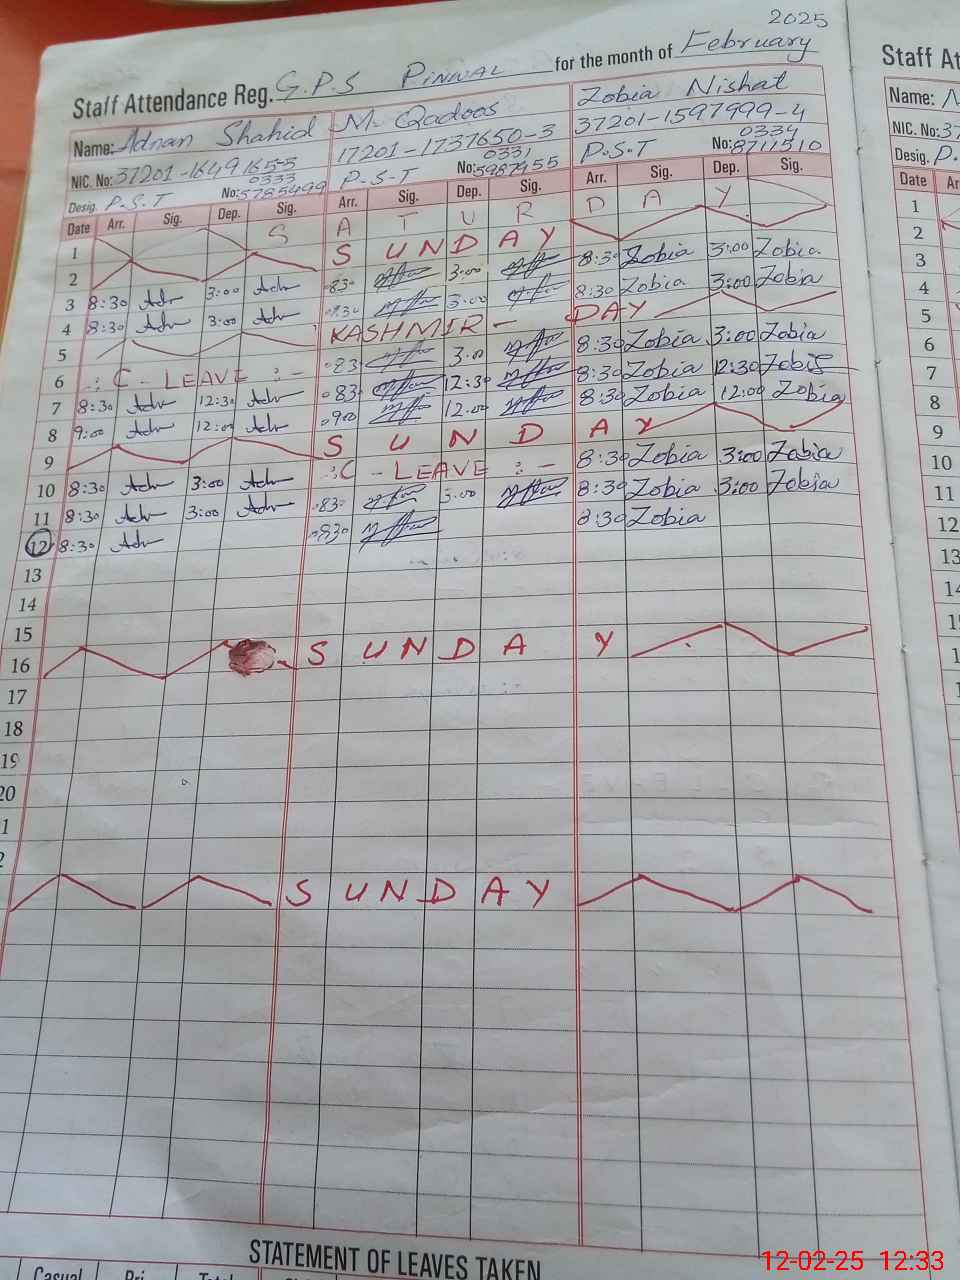 2025
Staff Attendance Reg. G.P.S PINWAL for the month of February
Name: Adnan Shahid M. Qadoos Zobia Nishat
NIC. No: 37201-1649165-5 17201-1737650-3 37201-1597999-4
Desig. P.S.T No: 0333 5785499 P-S-T No: 0331 5987955 P.S.T No: 0334 8711510
Date Arr. Sig. Dep. Sig. Arr. Sig. Dep. Sig. Arr. Sig. Dep. Sig.
1 S A T U R D A Y
2 S U N D A Y
3 8:30 Adn 3:00 Adn 830 3:00 8:30 Zobia 3:00 Zobia
4 8:30 Adn 3:00 Adn 830 3:00 8:30 Zobia 3:00 Zobia
5 KASHMIR - DAY
6 .: C - LEAVE :- 83 3:00 8:30 Zobia 3:00 Zobia
7 8:30 Adn 12:30 Adn 83 12:30 8:30 Zobia 12:30 Zobia
8 9:00 Adn 12:00 Adn 900 12:00 8:30 Zobia 12:00 Zobia
9 S U N D A Y
10 8:30 Adn 3:00 Adn .:C - LEAVE :- 8:30 Zobia 3:00 Zobia
11 8:30 Adn 3:00 Adn 830 3:00 8:30 Zobia 3:00 Zobia
12 8:30 Adn 830 8:30 Zobia
13
14
15
16 S U N D A Y
17
18
19
20
1
2
S U N D A Y
STATEMENT OF LEAVES TAKEN
Casual Pri Total
Staff At
Name:
NIC. No: 37
Desig. P.
Date Ar
1
2
3
4
5
6
7
8
9
10
11
12
13
12-02-25 12:33